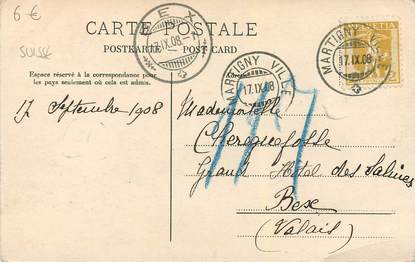 6 €
SUISSE
CARTE POSTALE
POSTKARTE — POST CARD
Espace réservé à la correspondance pour
les pays seulement où cela est admis.
BEX
18.IX.08.-7
MARTIGNY VILLE
17.IX.08
MARTIGNY VILLE
17.IX.08
HELVETIA
2
17 Septembre 1908
Mademoiselle
Grand Hôtel des Salines
Bex
(Valais)